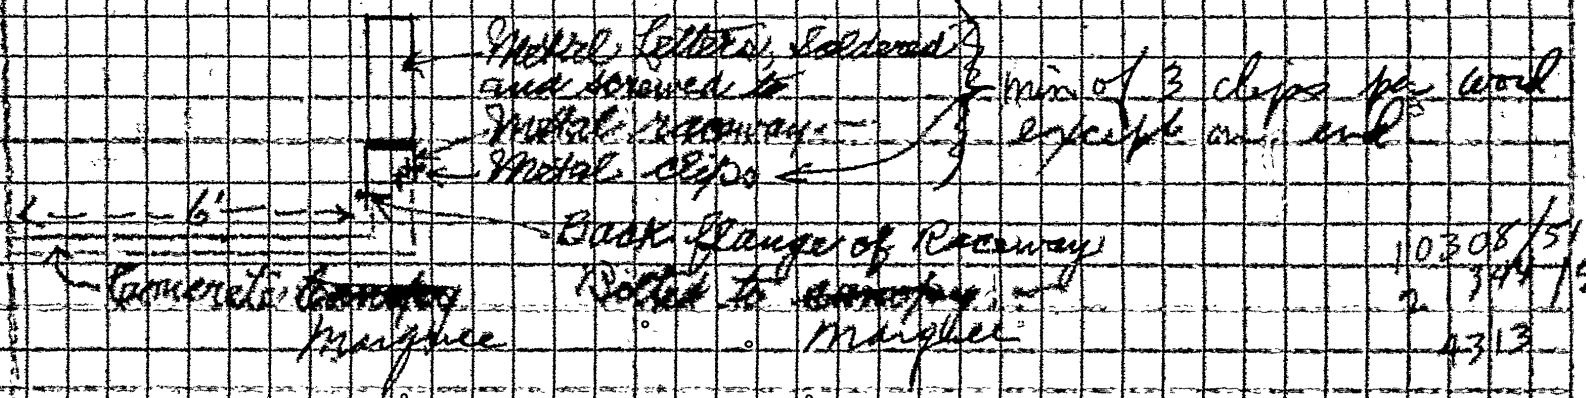 Metal Letters, Soldered
and screwed to
Metal raceway.
Metal clips
min of 3 clips per word
except on end
6'
Back flange of Raceway
Bolted to canopy
Marquee
Concrete canopy
Marquee
10308/51
2 344/5
4313